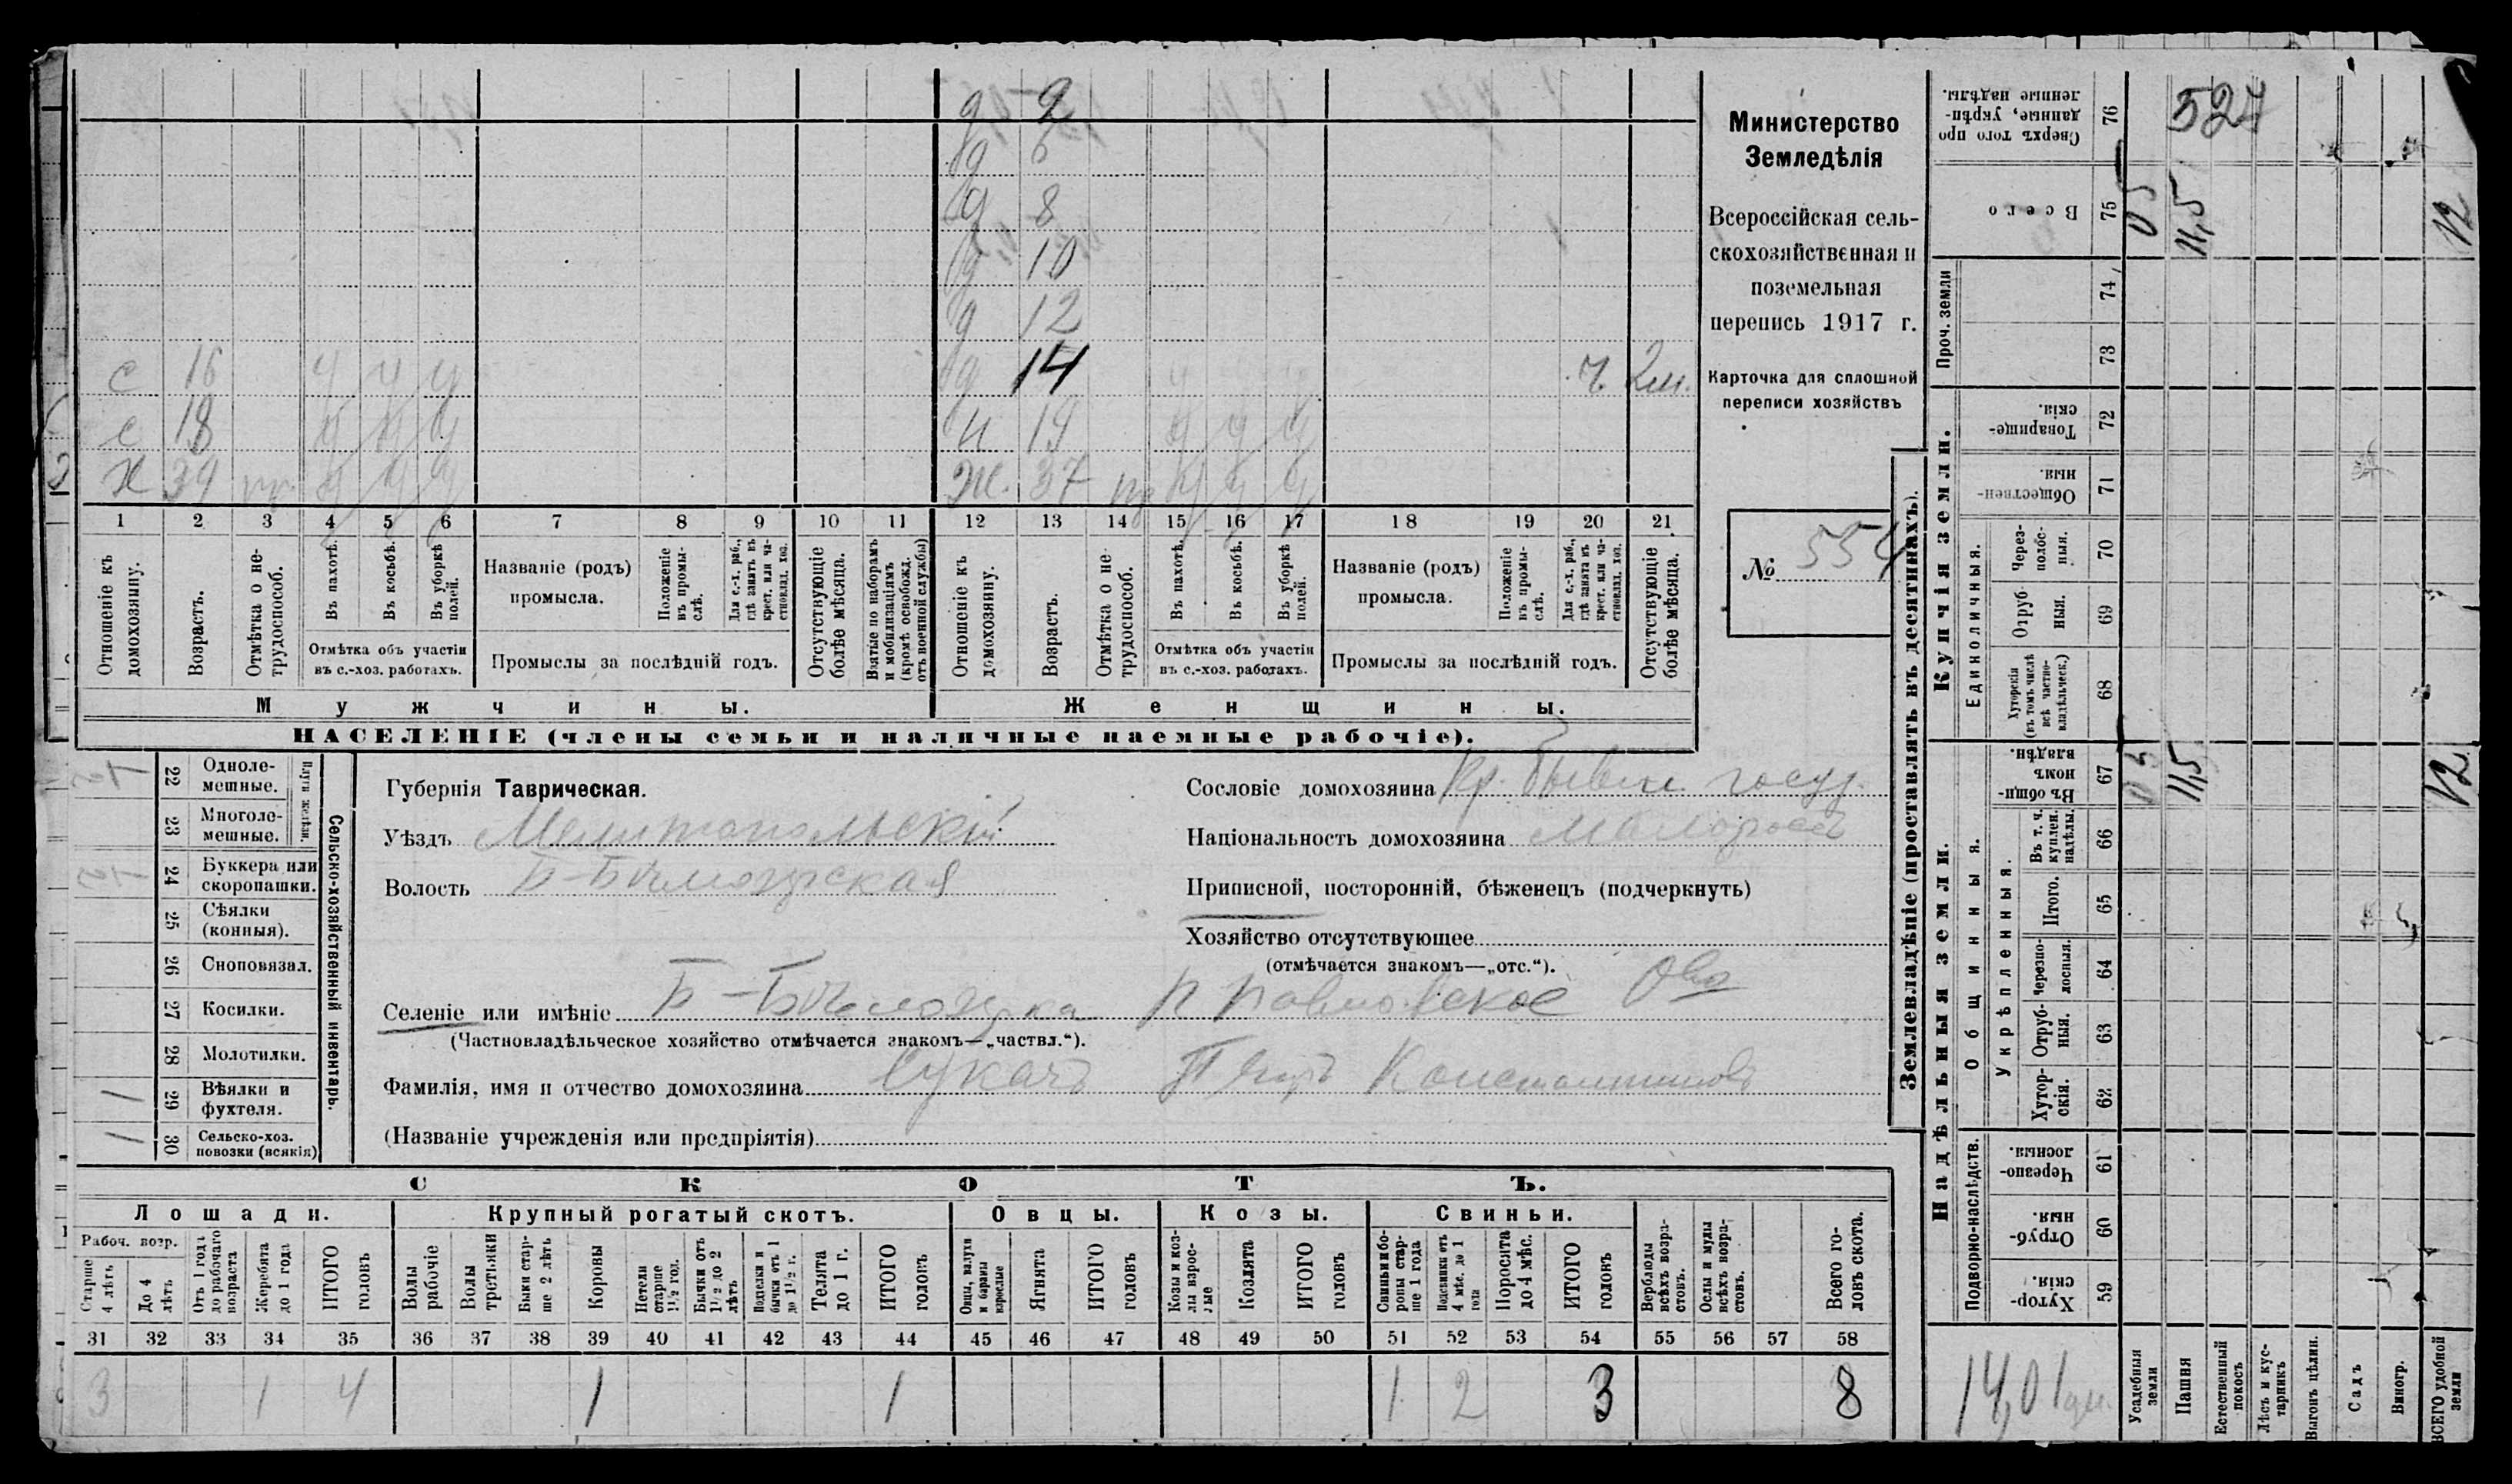 д 2
д 6
д 8
д 10
д 12
с 16 у у у д 14 у у у ч 2м.
с 18 у у у н 19 у у у
х 39 гр. у у у ж. 37 у у у
1 2 3 4 5 6 7 8 9 10 11 12 13 14 15 16 17 18 19 20 21
Отношеніе къ домохозяину.
Возрастъ.
Отмѣтка о нетрудоспособ.
Въ пахотѣ.
Въ косьбѣ.
Въ уборкѣ полей.
Отмѣтка объ участіи
въ с.-хоз. работахъ.
Названіе (родъ)
промысла.
Положеніе въ промыслѣ.
Для с.-х. раб., гдѣ занятъ въ крест. или частновлад. хоз.
Промыслы за послѣдній годъ.
Отсутствующіе болѣе мѣсяца.
Взятые по наборамъ и мобилизаціямъ (кромѣ освобожд. отъ военной службы)
Отношеніе къ домохозяину.
Возрастъ.
Отмѣтка о нетрудоспособ.
Въ пахотѣ.
Въ косьбѣ.
Въ уборкѣ полей.
Отмѣтка объ участіи
въ с.-хоз. работахъ.
Названіе (родъ)
промысла.
Положеніе въ промыслѣ.
Для с.-х. раб., гдѣ занята въ крест. или частновлад. хоз.
Промыслы за послѣдній годъ.
Отсутствующіе болѣе мѣсяца.
Мужчины.
Женщины.
НАСЕЛЕНІЕ (члены семьи и наличные наемные рабочіе).
Министерство
Земледѣлія
Всероссійская сель-
скохозяйственная и
поземельная
перепись 1917 г.
Карточка для сплошной
переписи хозяйствъ
№ 554
22 Одноле-
мешные.
23 Многоле-
мешные.
Плуги желѣзн.
24 Буккера или
скоропашки.
25 Сѣялки
(конныя).
26 Сноповязал.
27 Косилки.
28 Молотилки.
1 29 Вѣялки и
фухтеля.
1 30 Сельско-хоз.
повозки (всякія)
Сельско-хозяйственный инвентарь.
Губернія Таврическая.
Уѣздъ Мелитопольскій
Волость Б-Бѣлозерская
Сословіе домохозяина Кр. бывш. госуд.
Національность домохозяина Малороссъ
Приписной, посторонній, бѣженецъ (подчеркнуть)
Хозяйство отсутствующее
(отмѣчается знакомъ—„отс.“).
Селеніе или имѣніе Б-Бѣлозерка П Павловское Об-о
(Частновладѣльческое хозяйство отмѣчается знакомъ—„частвл.“).
Фамилія, имя и отчество домохозяина Сукачъ Петръ Константиновъ
(Названіе учрежденія или предпріятія)
СКОТЪ.
Лошади. Крупный рогатый скотъ. Овцы. Козы. Свиньи.
Рабоч. возр.
Старше 4 лѣтъ
До 4 лѣтъ
Отъ 1 года до рабочаго возраста
Жеребята до 1 года
ИТОГО головъ
Волы рабочіе
Волы третьяки
Быки старше 2 лѣтъ
Коровы
Нетели старше 1½ год.
Бычки отъ 1½ до 2 лѣтъ
Подтелки и бычки отъ 1 до 1½ г.
Телята до 1 г.
ИТОГО головъ
Овцы, валухи и бараны взрослые
Ягнята
ИТОГО головъ
Козы и козлы взрослые
Козлята
ИТОГО головъ
Свиньи и боровы старше 1 года
Подсвинки отъ 4 мѣс. до 1 года
Поросята до 4 мѣс.
ИТОГО головъ
Верблюды всѣхъ возрастовъ.
Ослы и мулы всѣхъ возрастовъ.
Всего головъ скота.
31 32 33 34 35 36 37 38 39 40 41 42 43 44 45 46 47 48 49 50 51 52 53 54 55 56 57 58
3 1 4 1 1 1 2 3 8
Землевладѣніе (проставлять въ десятинахъ).
Надѣльныя земли.
Купчія земли.
Проч. земли
Подворно-наслѣдств.
Общинныя.
Укрѣпленныя.
Единоличныя.
Сверхъ того проданные, укрѣпленные надѣлы. 76 527
Всего 75 05 11,5 12
74
73
Товарищескія. 72
Общественныя. 71
Черезполосныя. 70
Отрубныя. 69
Хуторскія (въ томъ числѣ всѣ частновладѣльческ.) 68
Въ общинномъ владѣн. 67 05 11,5 12
Въ т. ч. куплен. надѣлы. 66
Итого. 65
Черезполосныя. 64
Отрубныя. 63
Хуторскія. 62
Черезполосныя. 61
Отрубныя. 60
Хуторскія. 59
14,01
Усадебныя земли
Пашня
Естественный покосъ
Лѣсъ и кустарникъ
Выгонъ цѣлин.
Садъ
Виногр.
ВСЕГО удобной земли